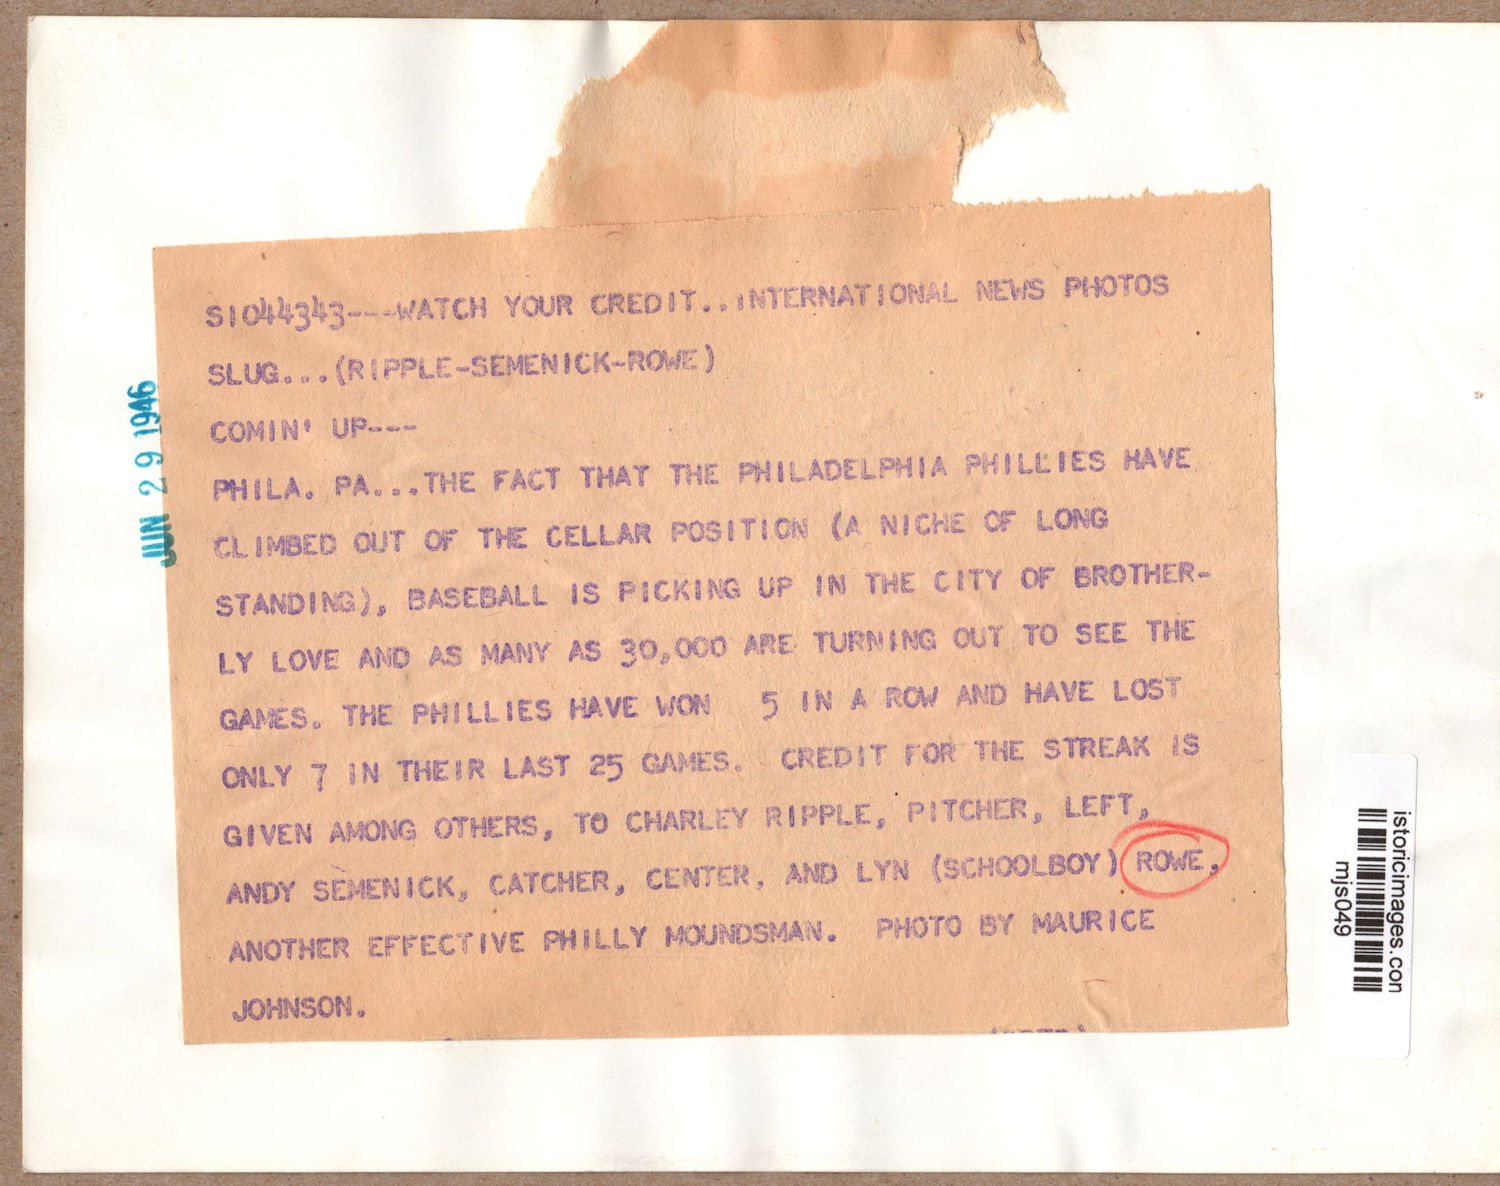 SI044343---WATCH YOUR CREDIT..INTERNATIONAL NEWS PHOTOS
SLUG...(RIPPLE-SEMENICK-ROWE)
COMIN' UP---
PHILA. PA...THE FACT THAT THE PHILADELPHIA PHILLIES HAVE
CLIMBED OUT OF THE CELLAR POSITION (A NICHE OF LONG
STANDING), BASEBALL IS PICKING UP IN THE CITY OF BROTHER-
LY LOVE AND AS MANY AS 30,000 ARE TURNING OUT TO SEE THE
GAMES. THE PHILLIES HAVE WON 5 IN A ROW AND HAVE LOST
ONLY 7 IN THEIR LAST 25 GAMES. CREDIT FOR THE STREAK IS
GIVEN AMONG OTHERS, TO CHARLEY RIPPLE, PITCHER, LEFT,
ANDY SEMENICK, CATCHER, CENTER, AND LYN (SCHOOLBOY) ROWE,
ANOTHER EFFECTIVE PHILLY MOUNDSMAN. PHOTO BY MAURICE
JOHNSON.
JUN 29 1946
istoricimages.con
mjs049